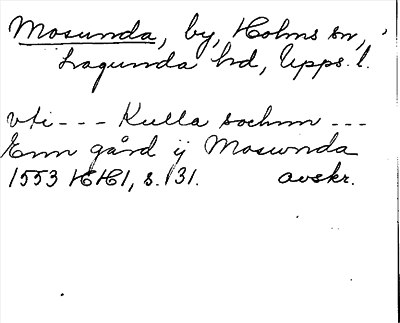 Mosunda, by, Holms sn,
Lagunda hd, Upps. l.
vti - - - Kulla sochnn - - -
Enn gård ij Moswnda
1553 HH1, s. 131. avskr.